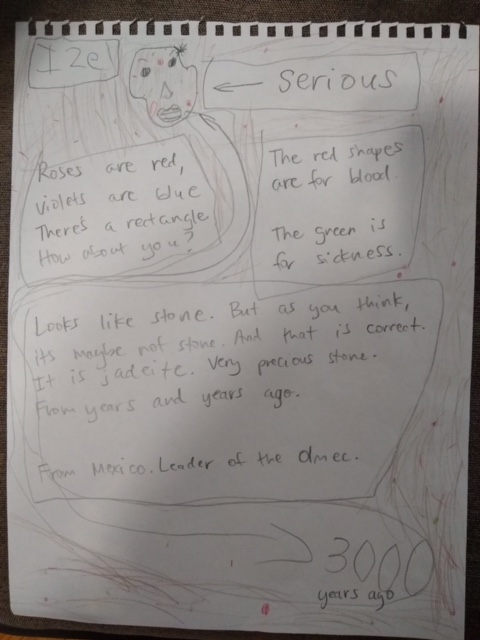 Ize
← Serious
Roses are red,
violets are blue
There's a rectangle
How about you?
The red shapes
are for blood.
The green is
for sickness.
Looks like stone. But as you think,
its maybe not stone. And that is correct.
It is jadeite. Very precious stone.
From years and years ago.
From Mexico. Leader of the Olmec.
3000
years ago